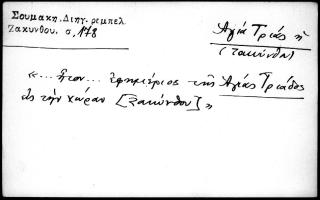 Σουμάκη. Διηγ. ρεμπελ.
Ζακύνθου. σ, 178
Αγία Τριάς η
(Ζακύνθω)
«... ήτον... εφημέριος της Αγίας Τριάδος
εις την χώραν [Ζακύνθου]»